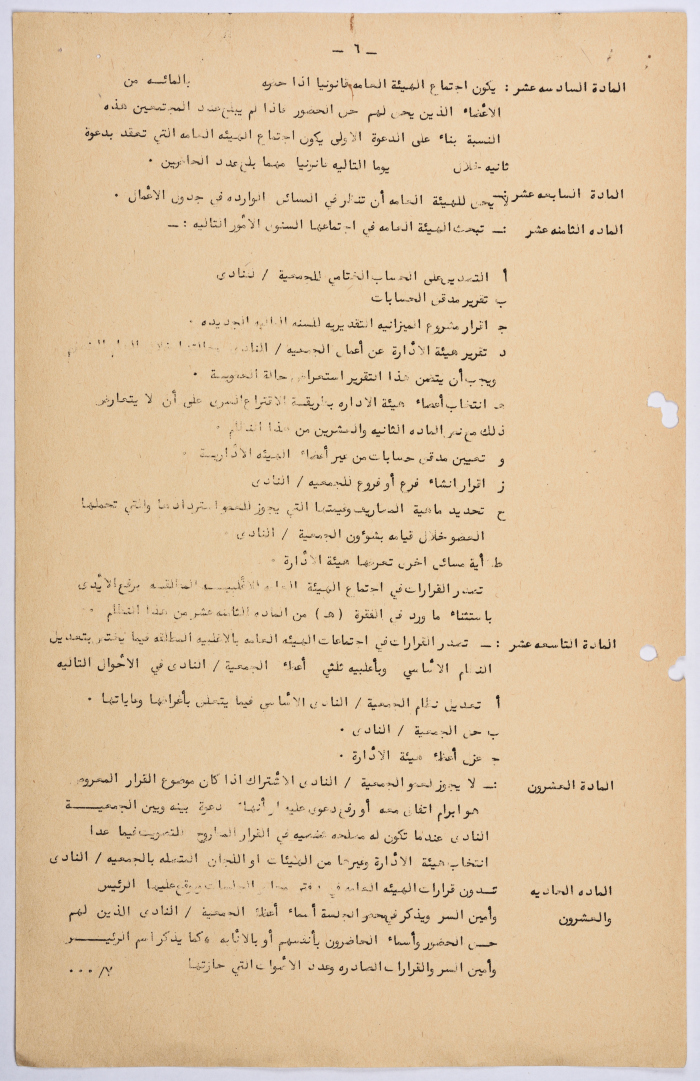 – ٦ –
المادة السادسه عشر : يكون اجتماع الهيئة العامه قانونيا اذا حضره بالمائـه من
الاعضاء الذين يحق لهم حق الحضور فاذا لم يبلغ عدد المجتمعين هذه
النسبة بناء على الدعوة الاولى يكون اجتماع الهيئه العامه التي تعقد بدعوة
ثانيه خلال يوما التاليه قانونيا مهما بلغ عدد الحاضرين ٠
المادة السابعه عشر :ـ لا يحق للهيئة العامه أن تنظر في المسائل الوارده في جدول الاعمال ٠
الماده الثامنه عشر :ـ تبحث الهيئة العامه في اجتماعها السنوى الأمور التاليه :ـ
أ التصديق على الحساب الختامي للجمعية / للنادى
ب تقرير مدقق الحسابات
ج اقرار مشروع الميزانيه التقديريه للسنه الماليه الجديده ٠
د تقرير هيئة الأدارة عن أعمال الجمعيه / النادى
ويجب أن يتضمن هذا التقرير استعراض حالة العضوية ٠
هـ انتخاب أعضاء هيئة الاداره بطريقة الاقتراع السرى على أن لا يتعارض
ذلك مع نص الماده الثانيه والعشرين من هذا النظام ٠
و تعيين مدقق حسابات من غير أعضاء الهيئه الأداريـة ٠
ز اقرار انشاء فرع أو فروع للجمعيه / النادى
ح تحديد ماهية المصاريف وقيمتها التي يجوز للعضو استردادها والتي تحملها
العضو خلال قيامه بشؤون الجمعية / النادى ٠
ط أية مسائل اخرى تعرضها هيئة الأدارة ٠
تصدر القرارات في اجتماع الهيئة العامه بالاغلبيـه المطلقـه برفع الأيدى
باستثناء ما ورد في الفقرة (هـ) من الماده الثامنه عشر من هذا النظام ٠
المادة التاسعه عشر :ـ تصدر القرارات في اجتماعات الهيئه العامه بالاغلبيه المطلقه فيما يختص بتعديل
النظام الأساسي وبأغلبيه ثلثي أعضاء الجمعية / النادى في الأحوال التاليه
أ تعديل نظام الجمعية / النادى الأساسى فيما يتعلق بأغراضها وغاياتها ٠
ب حل الجمعية / النادى ٠
ج عزل أعضاء هيئة الأدارة ٠
المادة العشرون :ـ لا يجوز لعضو الجمعية / النادى الاشتراك اذا كان موضوع القرار المعروض
هو ابرام اتفاق معه أو رفع دعوى عليه او أنهاء دعوة بينه وبين الجمعيـــة
النادى عندما تكون له مصلحه شخصيه في القرار المطروح للتصويت فيما عدا
انتخاب هيئة الأدارة وغيرها من الهيئات او اللجان المتصله بالجمعيه / النادى
الماده الحاديه تـدون قرارات الهيئه العامه في دفتر محاضر الجلسات ويوقع عليها الرئيس
والعشرون وأمين السر ويذكر في محضر الجلسة أسماء أعضاء الجمعية / النادى الذين لهم
حــق الحضور وأسماء الحاضرون بأنفسهم أو بالأنابه ، كما يذكر اسم الرئيــــس
وأمين السر والقرارات الصادره وعدد الأصوات التي حازتها
٠٠٠/٧